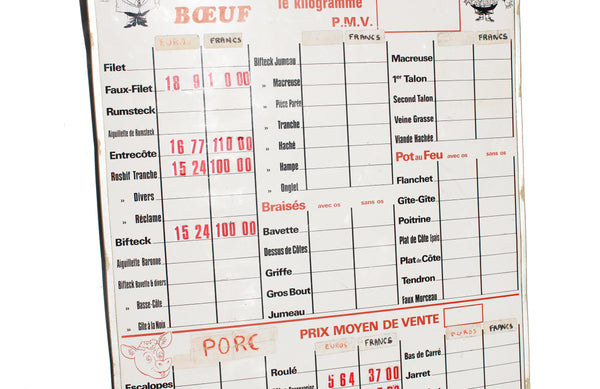 BŒUF
le kilogramme
P.M.V.
EUROS FRANCS
FRANCS
FRANCS
Filet
Faux-Filet 18 9 1 0 00
Rumsteck
Aiguillette de Rumsteck
Entrecôte 16 77 110 00
Rosbif Tranche 15 24 100 00
» Divers
» Réclame
Bifteck 15 24 100 00
Aiguillette Baronne
Bifteck Bavette & divers
» Basse-Côte
» Gîte à la Noix
Bifteck Jumeau
» Macreuse
» Pièce Parée
» Tranche
» Haché
» Hampe
» Onglet
Braisés avec os sans os
Bavette
Dessus de Côtes
Griffe
Gros Bout
Jumeau
Macreuse
1er Talon
Second Talon
Veine Grasse
Viande Hachée
Pot au Feu avec os sans os
Flanchet
Gîte-Gîte
Poitrine
Plat de Côte Épais
Plat de Côte
Tendron
Faux Morceau
PORC
PRIX MOYEN DE VENTE
EUROS FRANCS
EUROS FRANCS
Escalopes
Roulé 5 64 37 00
Bas de Carré
Jarret